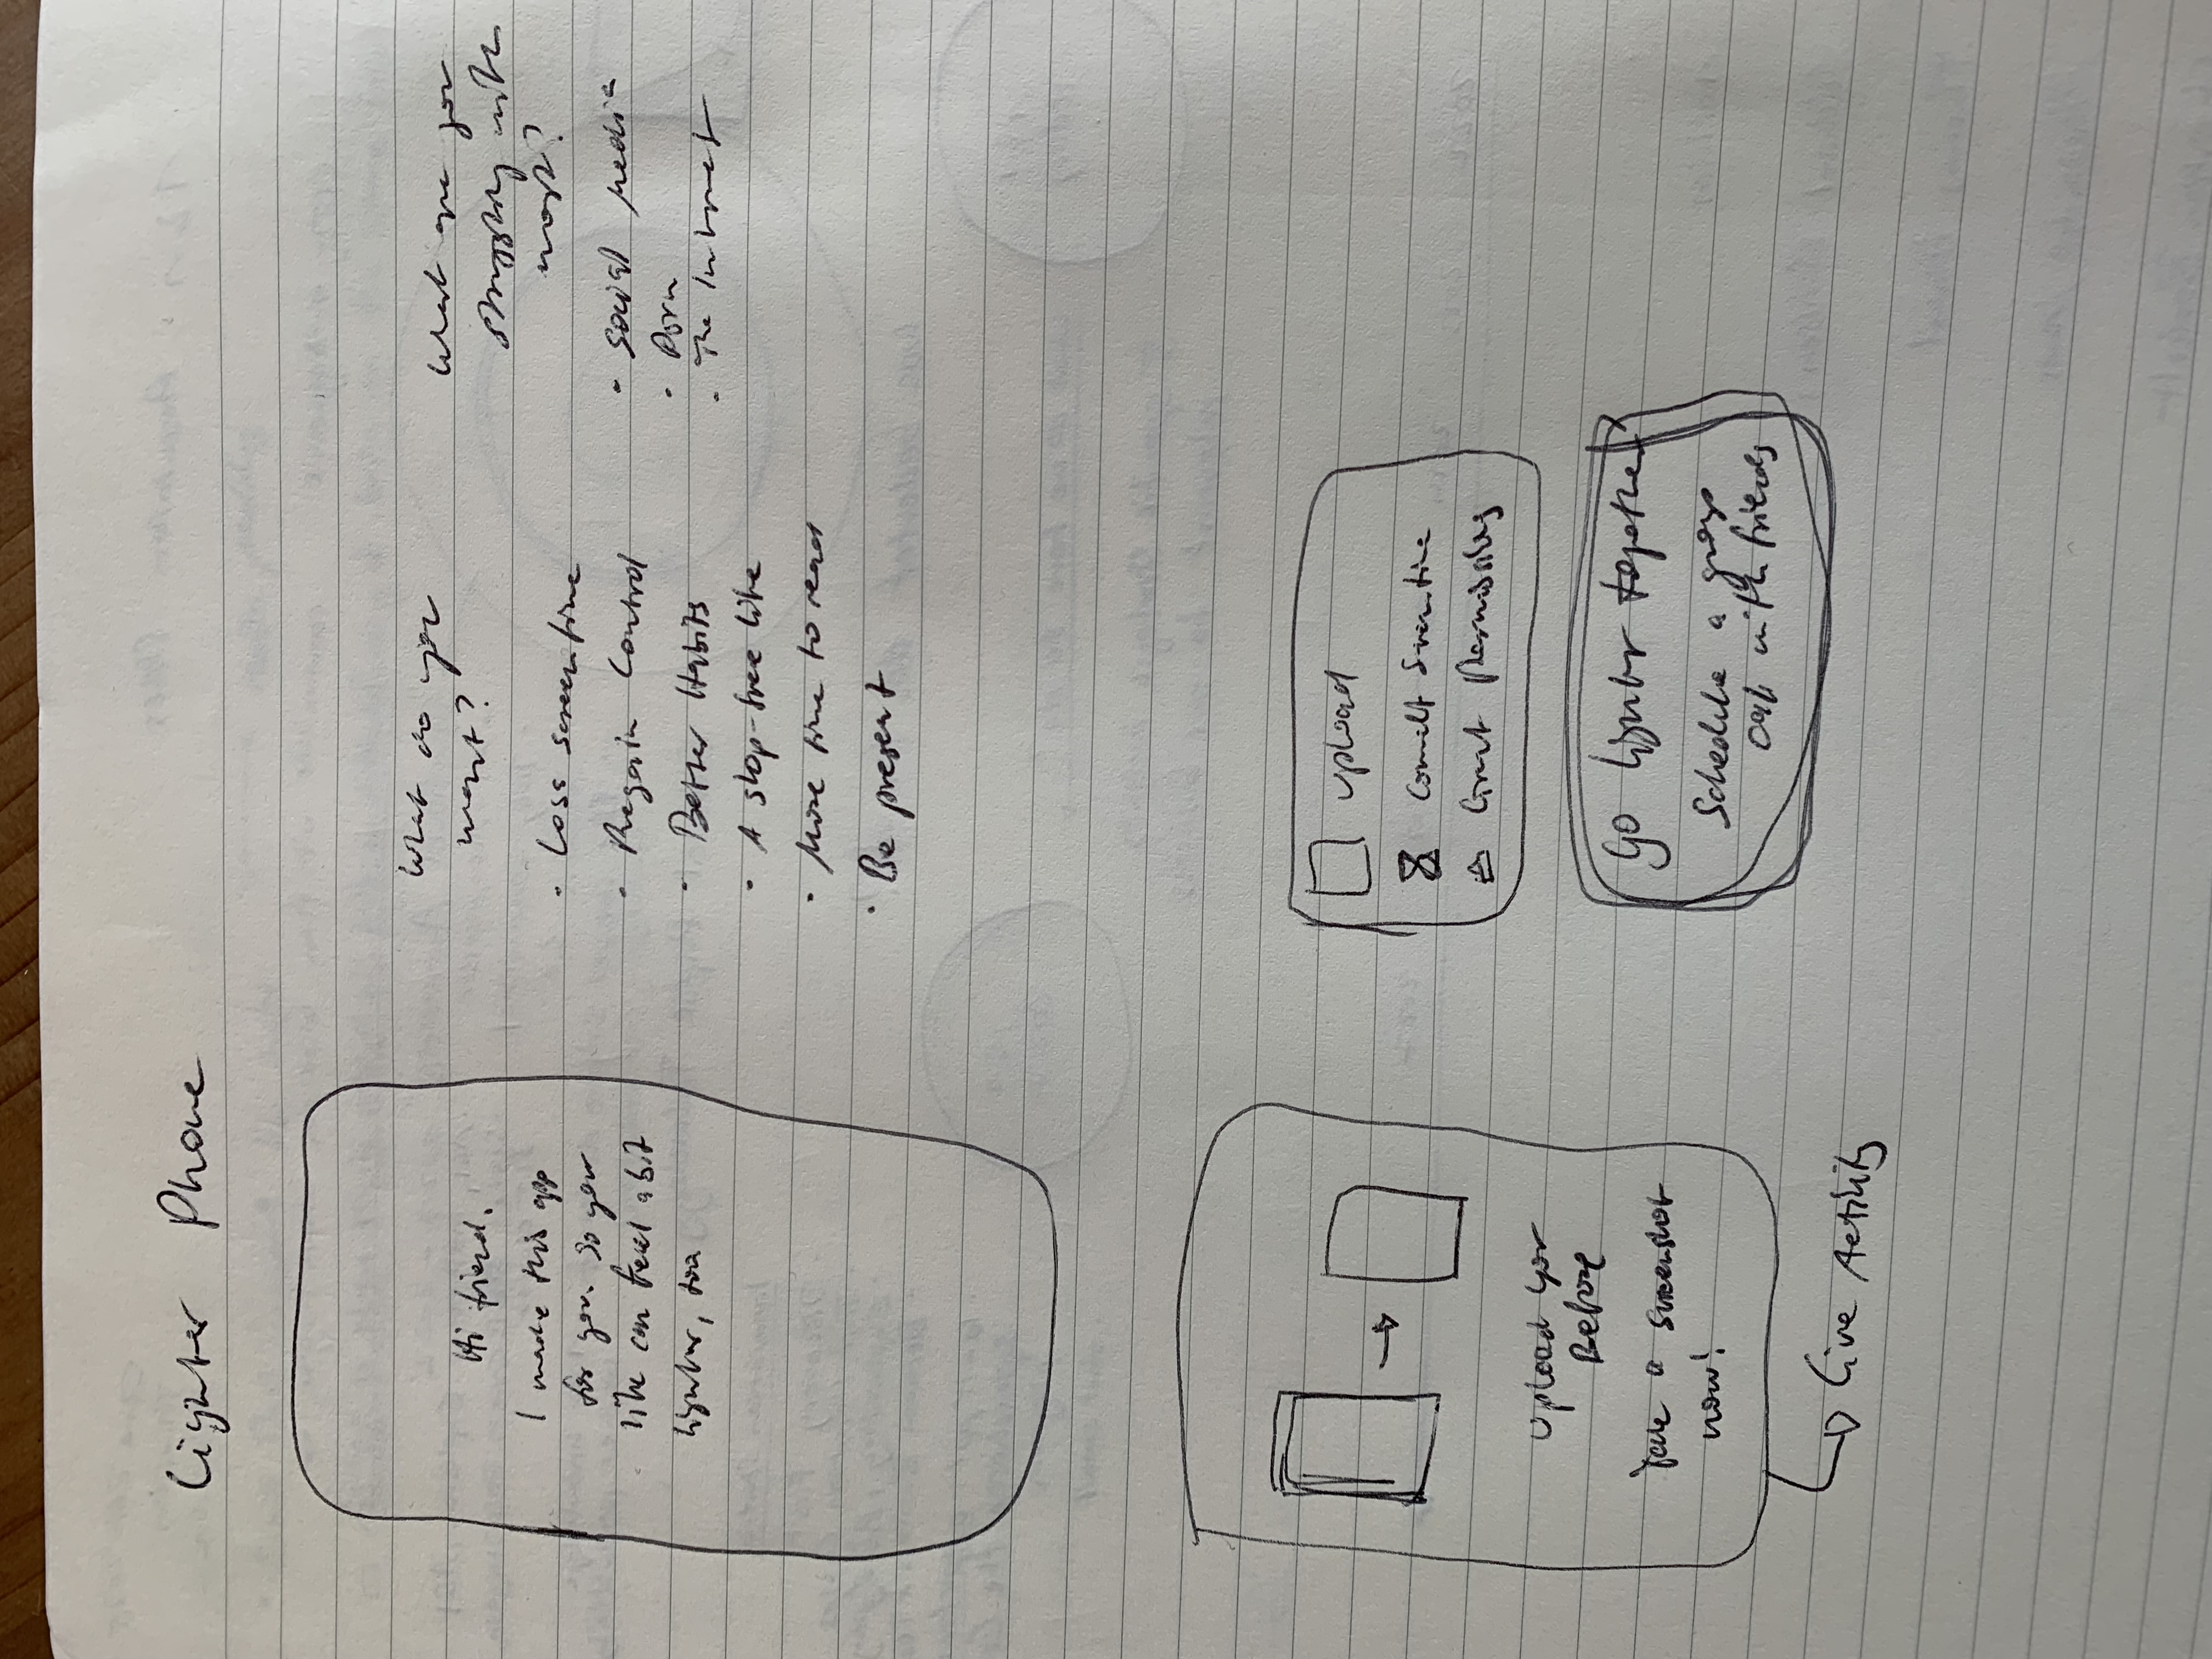 Lighter Phone
Hi friend.
I made this app
for you. So your
life can feel a bit
lighter, too
What do you
want?
• Less screentime
• Regain Control
• Better Habits
• A slop-free life
• More time to read
• Be present
What are you
struggling with
most?
• Social Media
• Porn
• The Internet
Upload your
Before
Take a screenshot
now!
Live Activity
Upload
Screentime
Grant Permissions
Go lighter together
Schedule a group
call with friends